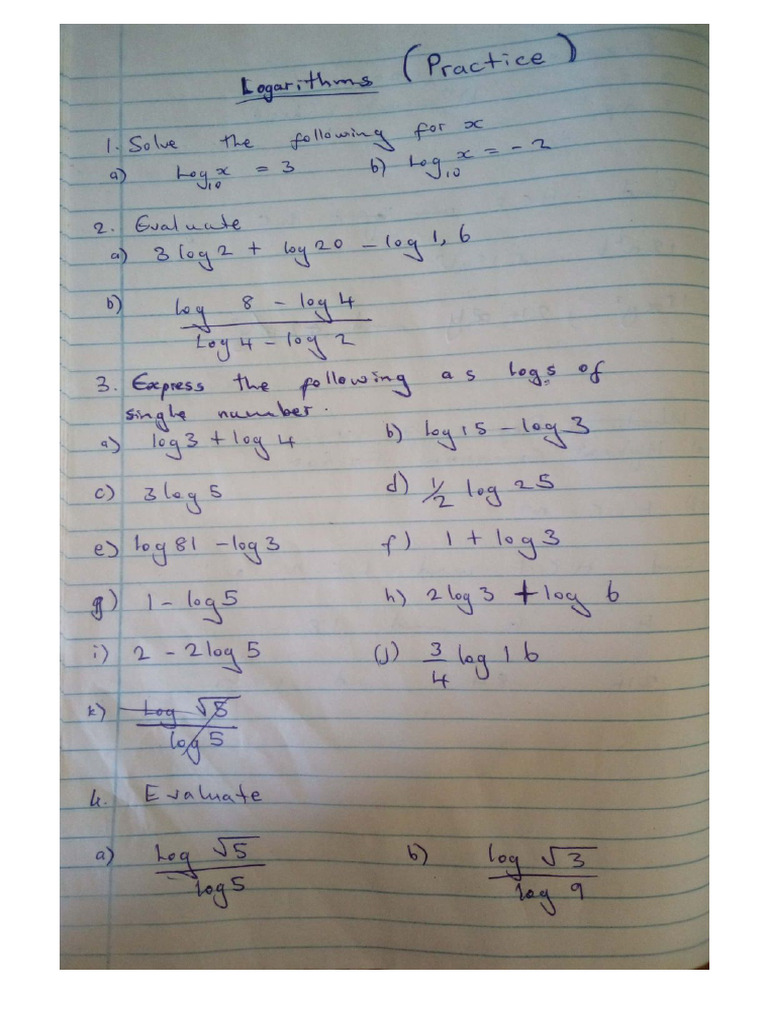 Logarithms (Practice)
1. Solve the following for x
a) Log₁₀x = 3 b) Log₁₀x = -2
2. Evaluate
a) 3 log 2 + log 20 - log 1,6
b) log 8 - log 4
Log 4 - log 2
3. Express the following as logs of
single number.
a) log 3 + log 4 b) log 15 - log 3
c) 3 log 5 d) 1/2 log 25
e) log 81 - log 3 f) 1 + log 3
g) 1 - log 5 h) 2 log 3 + log 6
i) 2 - 2 log 5 (j) 3/4 log 16
k) Log √8
log 5
4. Evaluate
a) Log √5 b) log √3
log 5 log 9